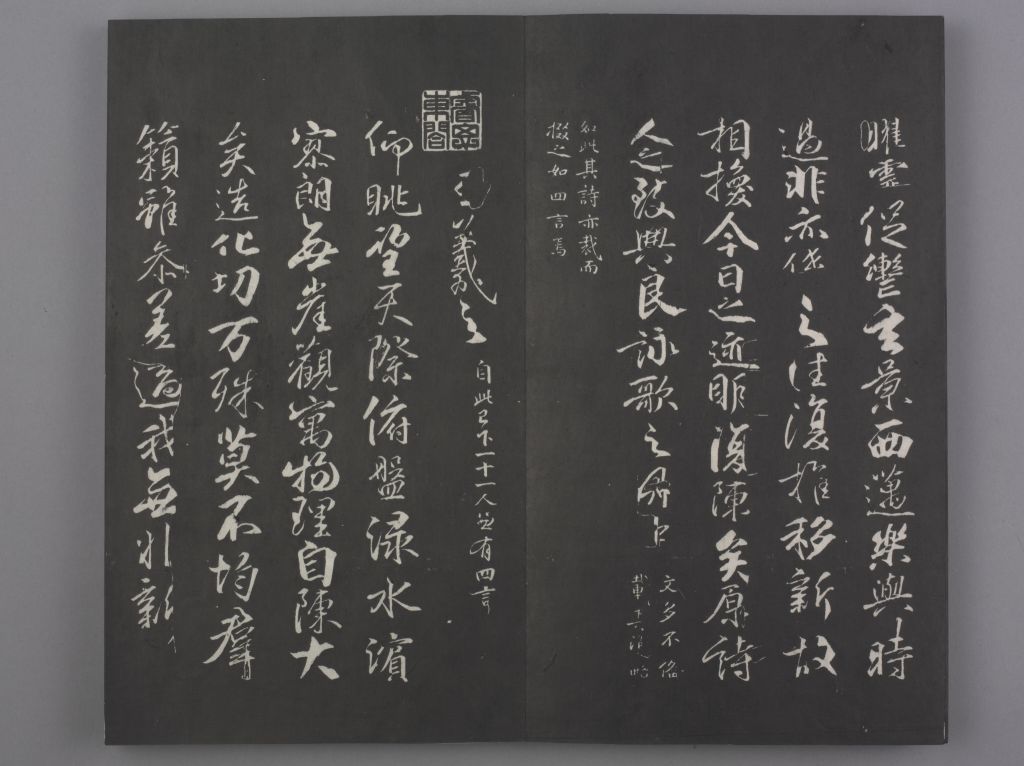 曜靈促轡玄景西邁樂與時
過悲亦係之往復推移新故
相換今日之迹明復陳矣原詩
人之致興良詠歌之有由
文多不備
載其大略
如此其詩亦裁而
綴之如四言焉
審定
東閣
王羲之 自此已下一十一人並有四言
仰眺望天際俯盤淥水濱
寥朗無崖觀寓物理自陳大
矣造化功万殊莫不均群
籟雖參差適我無非新